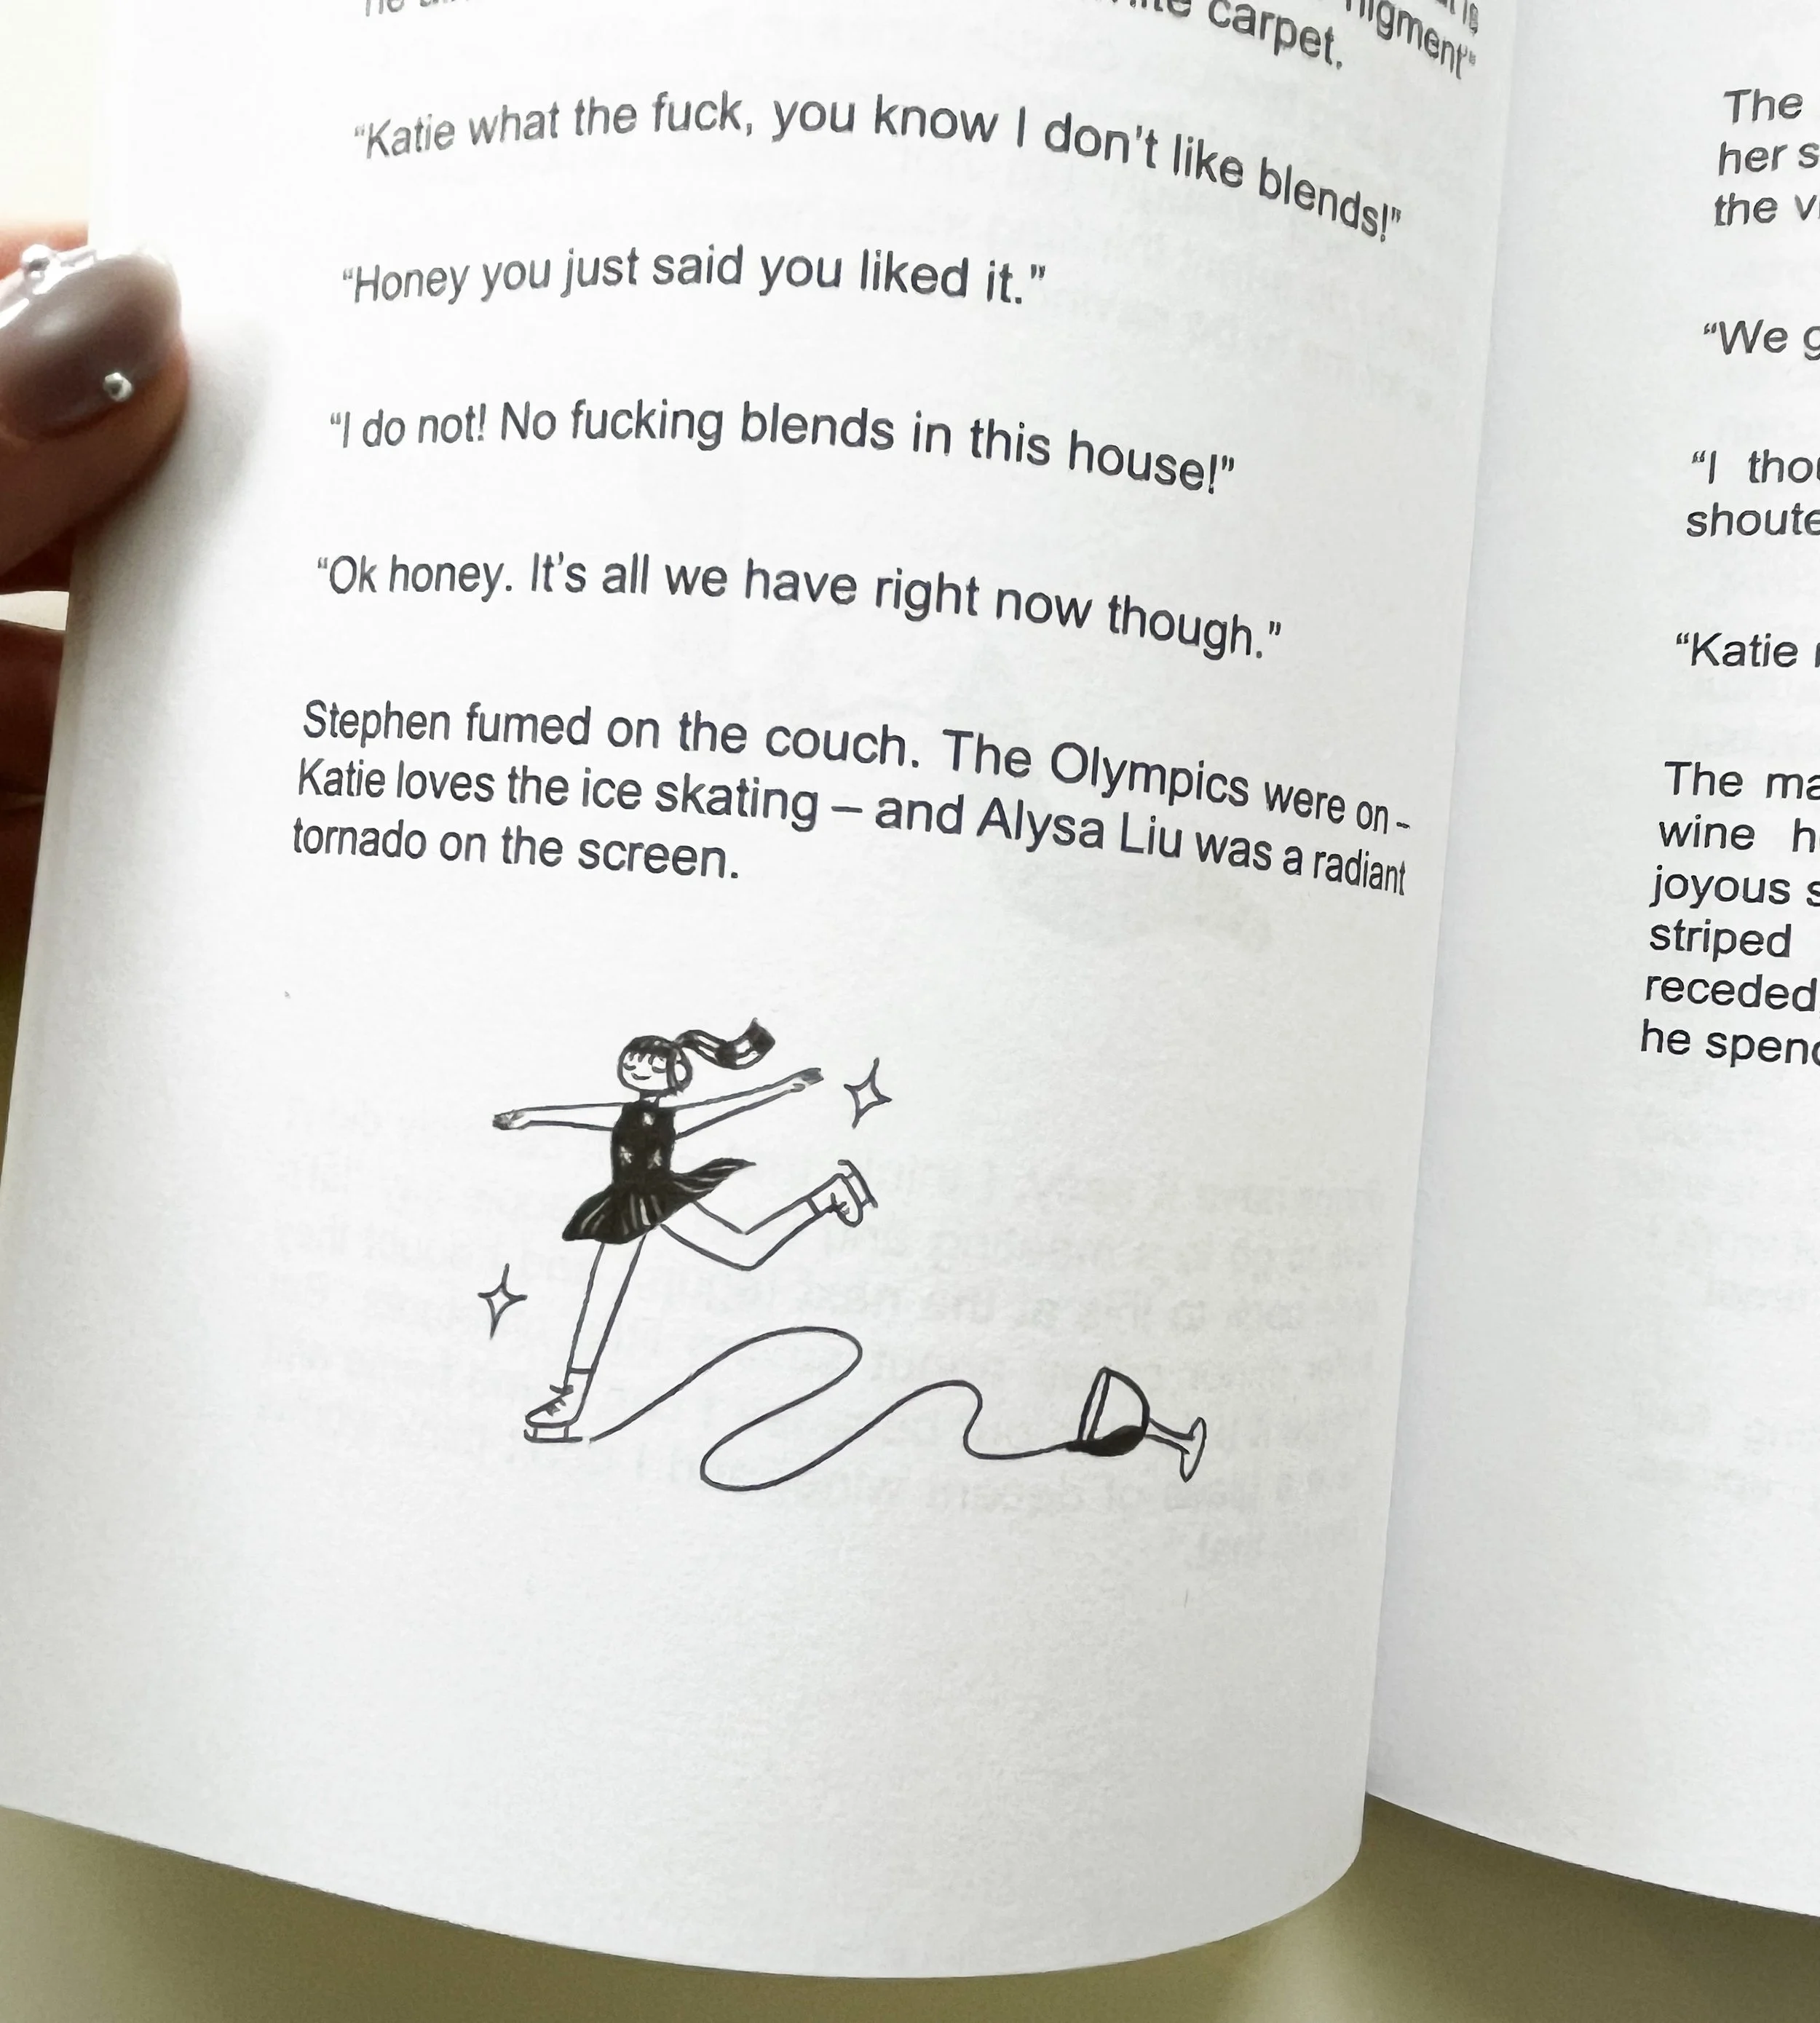 carpet.
"Katie what the fuck, you know I don't like blends!"
"Honey you just said you liked it."
"I do not! No fucking blends in this house!"
"Ok honey. It's all we have right now though."
Stephen fumed on the couch. The Olympics were on -
Katie loves the ice skating – and Alysa Liu was a radiant
tornado on the screen.
The
her
the
"We
"I
"Katie
The
wine
joyous
striped
receded
he